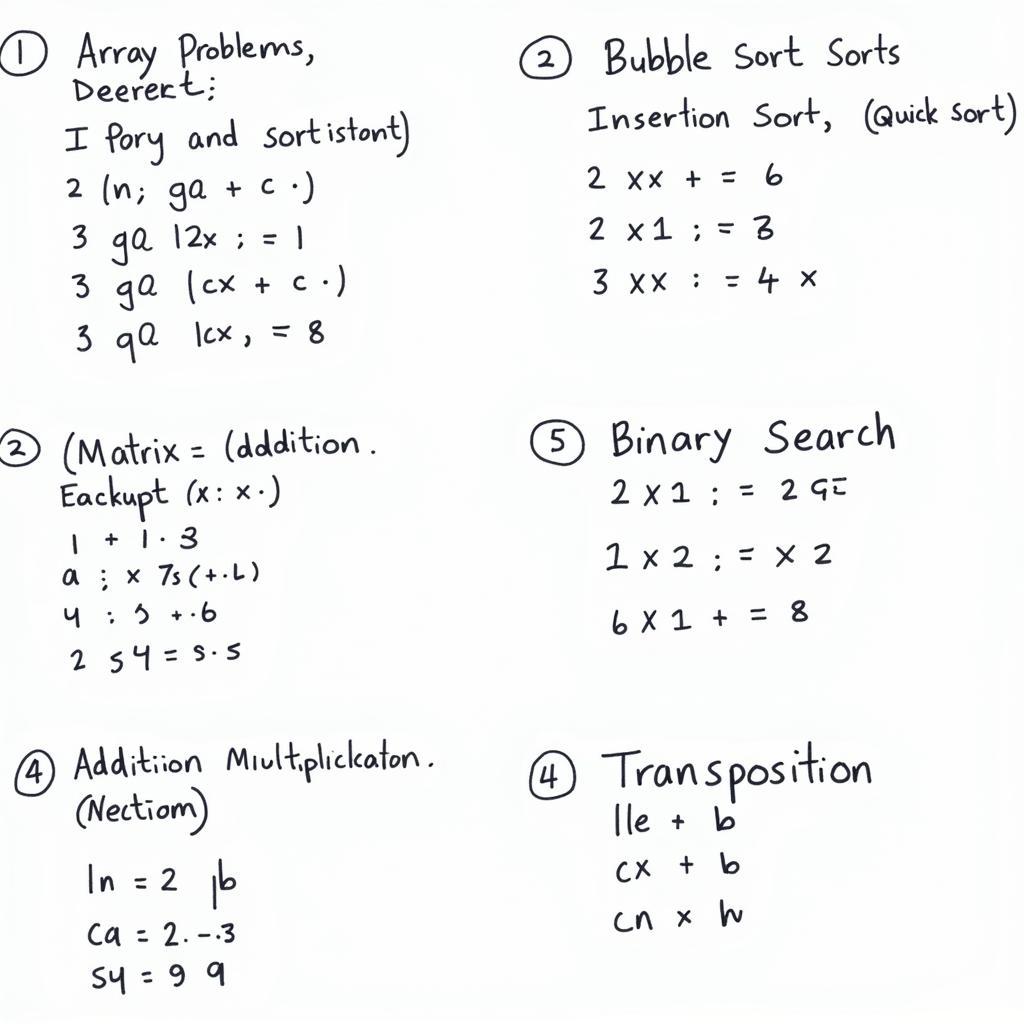 ① Array Problems,
Deerect:
I fory and sortistont)
2 (n; ga + c ·)
3 ga 12x ; = 1
3 ga (cx + c ·)
3 qa 1cx, = 8
② Bubble Sort Sorts
Insertion Sort, (Quick sort)
2 xx + = 6
2 x1 ; = 3
3 xx : = 4 x
② (Matrix = (dddition.
Eackupt (x: x·)
1 + 1 · 3
a ; x 7s (+·L)
4 : 5 +·6
2 s4 = s·s
⑤ Binary Search
2 x 1 ; = 2
1 x 2 ; = x 2
6 x 1 + = 8
④ Additiion Miultiplickaton.
(Nectiom)
ln = 2 b
ca = 2.-.3
sy = 9 9
④ Transposition
lle + b
cx + b
cn x h